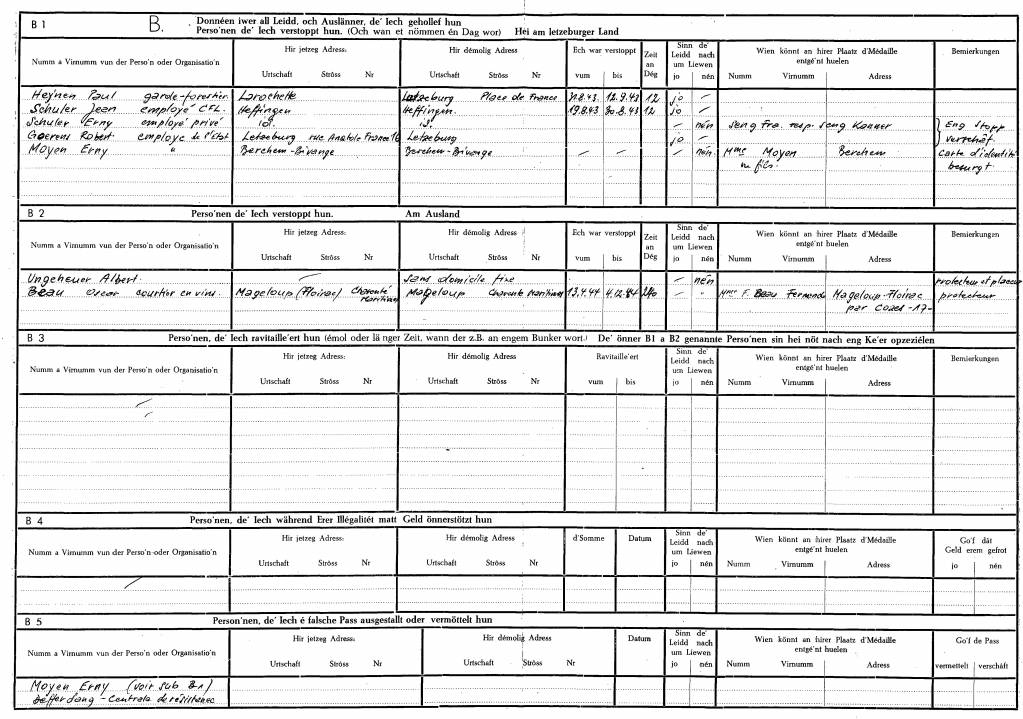 B 1 B. Donnéen iwer all Leidd, och Auslänner, de' Iech gehollef hun
Perso'nen de' Iech verstoppt hun. (Och wan et nömmen én Dag wor) Hei am letzeburger Land
Numm a Virnumm vun der Perso'n oder Organisatio'n
Hir jetzeg Adress:
Urtschaft Ströss Nr
Hir démolig Adress
Urtschaft Ströss Nr
Ech war verstoppt
vum bis
Zeit an Dég
Sinn de' Leidd nach um Liewen
jo nén
Wien könnt an hirer Plaatz d'Médaille entgé'nt huelen
Numm Virnumm Adress
Bemierkungen
Heynen Paul garde-forestier Larochette Letzeburg Place de France 31.8.43. 12.9.43 12 jo –
Schuler Jean employé CFL. Heffingen Heffingen. 19.8.43 30.8.43 12 jo –
Schuler Erny employé privé id. id. – nén seng Fra. resp. seng Kanner Eng Stopp
Goerens Robert employé de l'Etat Letzeburg rue Anatole France 16 Letzeburg jo – verschaf.
Moyen Erny " Berchem-Bivange Berchem-Bivange – – – nén. Mme Moyen Berchem Carte d'identité
un fils. besurgt
B 2 Perso'nen de' Iech verstoppt hun. Am Ausland
Numm a Virnumm vun der Perso'n oder Organisatio'n
Hir jetzeg Adress:
Urtschaft Ströss Nr
Hir démolig Adress
Urtschaft Ströss Nr
Ech war verstoppt
vum bis
Zeit an Dég
Sinn de' Leidd nach um Liewen
jo nén
Wien könnt an hirer Plaatz d'Médaille entgé'nt huelen
Numm Virnumm Adress
Bemierkungen
Ungeheuer Albert. – sans domicile fixe – nén protecteur et placeur
Beau Oscar courtier en vins. Mageloup (Floirac) Charente Maritimes Mageloup Charente Maritimes 13.4.44 4.12.44 240 – " Mme F. Beau Fernande Mageloup-Floirac protecteur
par Cozes -17-
B 3 Perso'nen, de' Iech ravitaille'ert hun (émol oder lä nger Zeit, wann der z.B. an engem Bunker wort.) De' önner B1 a B2 genannte Perso'nen sin hei nöt nach eng Ke'er opzeziélen
Numm a Virnumm vun der Perso'n oder Organisatio'n
Hir jetzeg Adress:
Urtschaft Ströss Nr
Hir démolig Adress
Urtschaft Ströss Nr
Ravitaille'ert
vum bis
Sinn de' Leidd nach um Liewen
jo nén
Wien könnt an hirer Plaatz d'Médaille entgé'nt huelen
Numm Virnumm Adress
Bemierkungen
B 4 Perso'nen, de' Iech während Erer Illégalitét matt Geld önnerstötzt hun
Numm a Virnumm vun der Perso'n oder Organisatio'n
Hir jetzeg Adress:
Urtschaft Ströss Nr
Hir démolig Adress
Urtschaft Ströss Nr
d'Somme
Datum
Sinn de' Leidd nach um Liewen
jo nén
Wien könnt an hirer Plaatz d'Médaille entgé'nt huelen
Numm Virnumm Adress
Go'f dát Geld erem gefrot
jo nén
B 5 Person'nen, de' Iech é falsche Pass ausgestallt oder vermöttelt hun
Numm a Virnumm vun der Perso'n oder Organisatio'n
Hir jetzeg Adress:
Urtschaft Ströss Nr
Hir démolig Adress
Urtschaft Ströss Nr
Datum
Sinn de' Leidd nach um Liewen
jo nén
Wien könnt an hirer Plaatz d'Médaille entgé'nt huelen
Numm Virnumm Adress
Go'f de Pass
vermettelt verschäft
Moyen Erny (voir sub B1)
Défferdang - Centrale de résistance